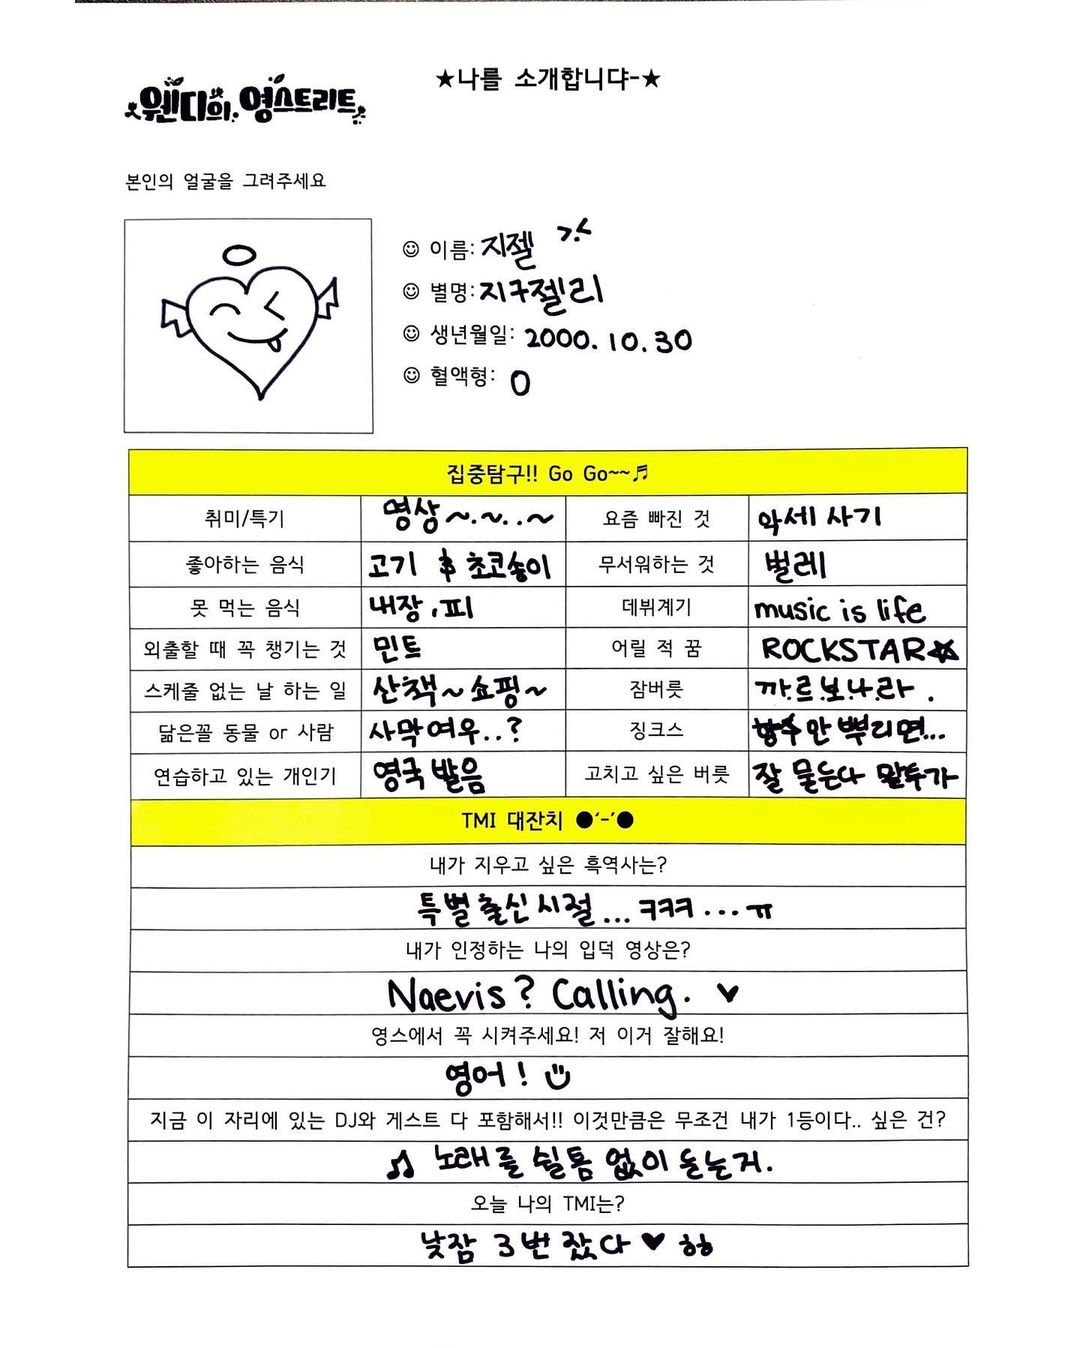 ★나를 소개합니댜-★
웬디의 영스트리트
본인의 얼굴을 그려주세요
☺ 이름: 지젤 >.<
☺ 별명: 지구젤리
☺ 생년월일: 2000. 10. 30
☺ 혈액형: O
집중탐구!! Go Go~~♬
취미/특기 명상~.~..~ 요즘 빠진 것 악세 사기
좋아하는 음식 고기 & 초코송이 무서워하는 것 벌레
못 먹는 음식 내장, 피 데뷔계기 music is life
외출할 때 꼭 챙기는 것 민트 어릴 적 꿈 ROCKSTAR☆
스케줄 없는 날 하는 일 산책~쇼핑~ 잠버릇 까.르.보.나.라.
닮은꼴 동물 or 사람 사막여우..? 징크스 향수 안 뿌리면...
연습하고 있는 개인기 영국 발음 고치고 싶은 버릇 잘 물든다 말투가
TMI 대잔치 ●'-'●
내가 지우고 싶은 흑역사는?
특별 출신 시절... ㅋㅋㅋ...ㅠ
내가 인정하는 나의 입덕 영상은?
Naevis? Calling. ♥
영스에서 꼭 시켜주세요! 저 이거 잘해요!
영어! ☺
지금 이 자리에 있는 DJ와 게스트 다 포함해서!! 이것만큼은 무조건 내가 1등이다.. 싶은 건?
♫ 노래를 쉴틈 없이 듣는거.
오늘 나의 TMI는?
낮잠 3번 잤다 ♥ ㅎㅎ